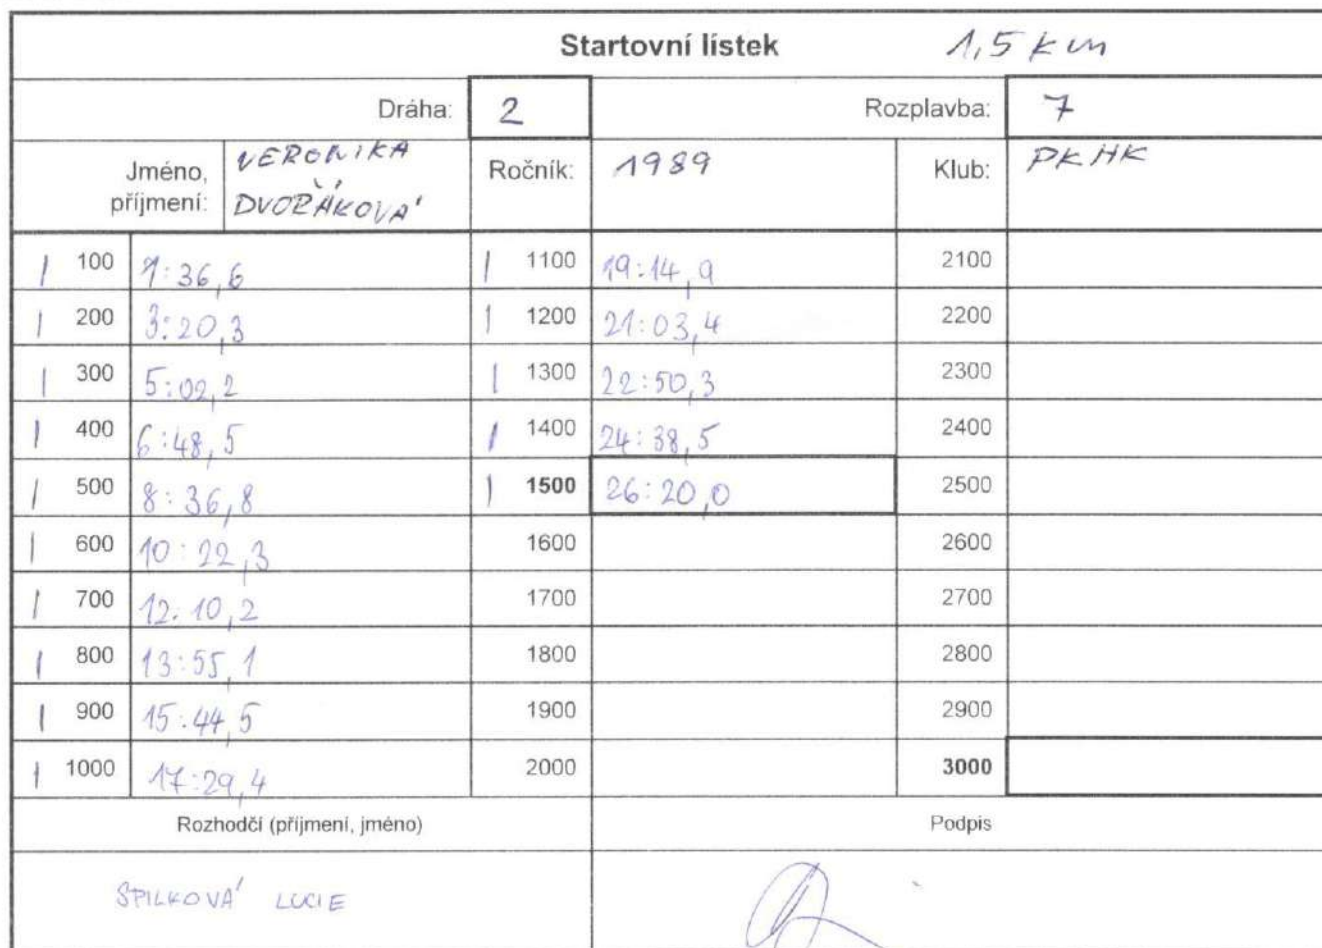 Startovní lístek 1,5 km
Dráha: 2 Rozplavba: 7
Jméno, příjmení: VERONIKA DVOŘÁKOVÁ Ročník: 1989 Klub: PKHK
| 100 1:36,6 | 1100 19:14,9 2100
| 200 3:20,3 | 1200 21:03,4 2200
| 300 5:02,2 | 1300 22:50,3 2300
| 400 6:48,5 | 1400 24:38,5 2400
| 500 8:36,8 | 1500 26:20,0 2500
| 600 10:22,3 1600 2600
| 700 12.10,2 1700 2700
| 800 13:55,1 1800 2800
| 900 15:44,5 1900 2900
| 1000 17:29,4 2000 3000
Rozhodčí (příjmení, jméno) Podpis
SPILKOVÁ LUCIE